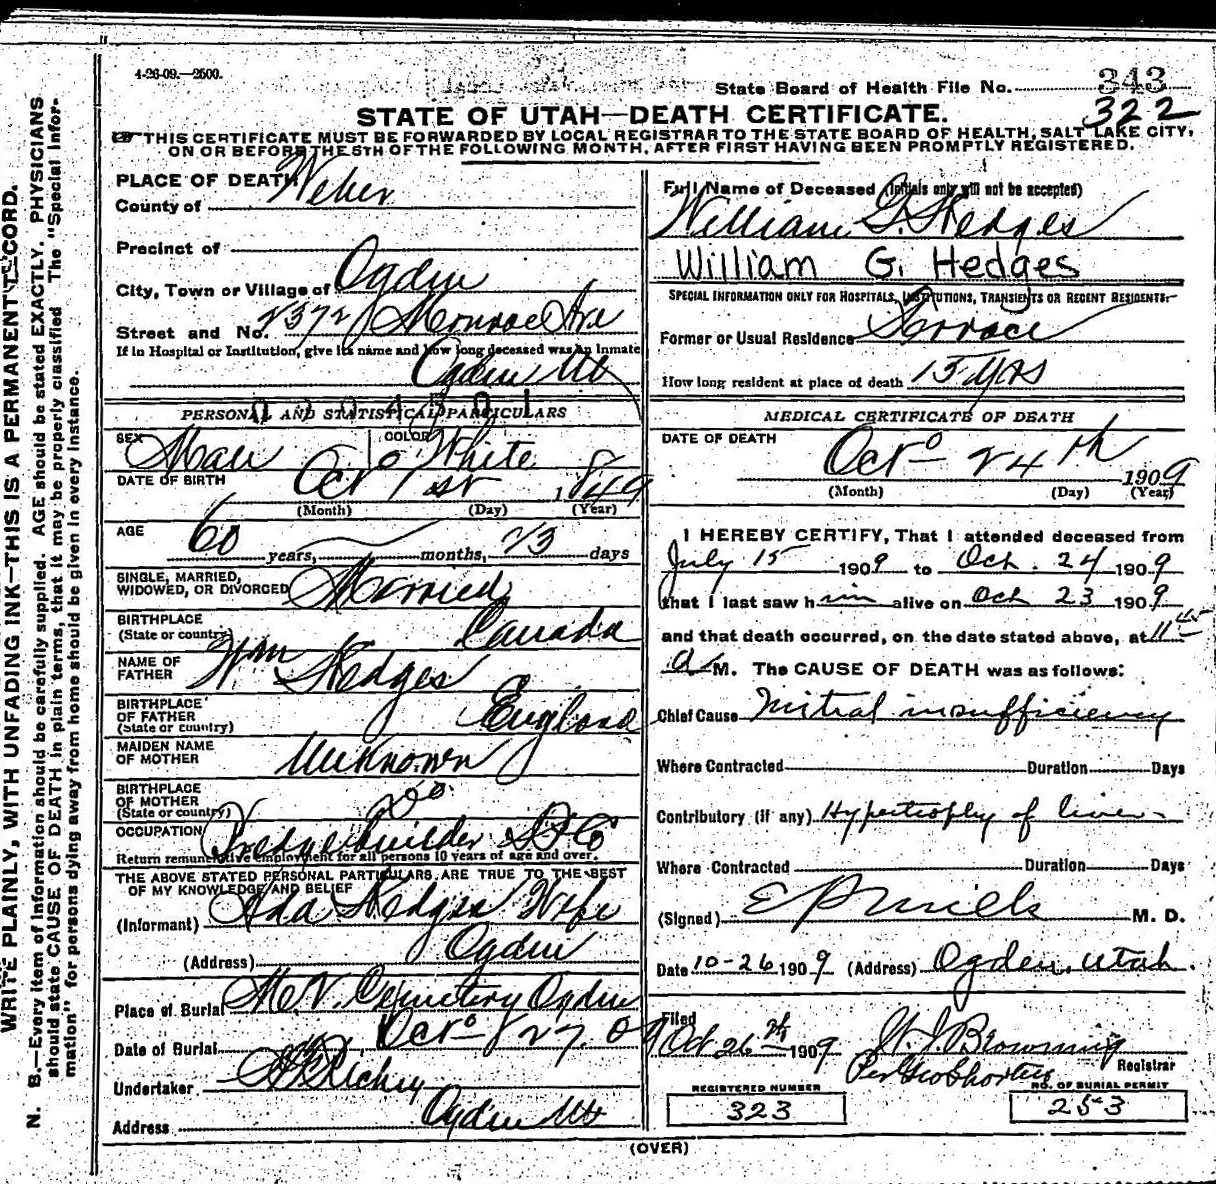 4-26-09.—2500.
State Board of Health File No. 343
322
STATE OF UTAH—DEATH CERTIFICATE.
THIS CERTIFICATE MUST BE FORWARDED BY LOCAL REGISTRAR TO THE STATE BOARD OF HEALTH, SALT LAKE CITY,
ON OR BEFORE THE 5TH OF THE FOLLOWING MONTH, AFTER FIRST HAVING BEEN PROMPTLY REGISTERED.
WRITE PLAINLY, WITH UNFADING INK—THIS IS A PERMANENT RECORD.
N. B.—Every item of information should be carefully supplied. AGE should be stated EXACTLY. PHYSICIANS
should state CAUSE OF DEATH in plain terms, that it may be properly classified. The "Special Infor-
mation" for persons dying away from home should be given in every instance.
PLACE OF DEATH
County of Weber
Precinct of
City, Town or Village of Ogden
Street and No. 2372 Monroe Ave
If in Hospital or Institution, give its name and how long deceased was an Inmate
Ogden Ut
PERSONAL AND STATISTICAL PARTICULARS
SEX Man COLOR White
DATE OF BIRTH Oct 1st 1849
(Month) (Day) (Year)
AGE 60 years, months, 23 days
SINGLE, MARRIED,
WIDOWED, OR DIVORCED Married
BIRTHPLACE
(State or country) Canada
NAME OF
FATHER Wm Hedges
BIRTHPLACE
OF FATHER
(State or country) England
MAIDEN NAME
OF MOTHER Unknown
BIRTHPLACE
OF MOTHER
(State or country) do
OCCUPATION builder
Return remunerative employment for all persons 10 years of age and over.
THE ABOVE STATED PERSONAL PARTICULARS ARE TRUE TO THE BEST
OF MY KNOWLEDGE AND BELIEF
(Informant) Ada Hedges Wife
(Address) Ogden
Place of Burial Mt. V. Cemetery Ogden
Date of Burial Oct 27. 09
Undertaker Richey
Address Ogden Ut
Full Name of Deceased (Initials only will not be accepted)
William G. Hedges
William G. Hedges
SPECIAL INFORMATION ONLY FOR HOSPITALS, INSTITUTIONS, TRANSIENTS OR RECENT RESIDENTS.
Former or Usual Residence Terrace
How long resident at place of death 15 yrs
MEDICAL CERTIFICATE OF DEATH
DATE OF DEATH
Oct 24th 1909
(Month) (Day) (Year)
I HEREBY CERTIFY, That I attended deceased from
July 15 1909 to Oct. 24 1909
that I last saw him alive on Oct 23 1909
and that death occurred, on the date stated above, at 11 45
a M. The CAUSE OF DEATH was as follows:
Chief Cause Mitral insufficiency
Where Contracted Duration Days
Contributory (if any) Hypertrophy of liver
Where Contracted Duration Days
(Signed) M. D.
Date 10-26 1909 (Address) Ogden, Utah.
Filed
Oct 26th 1909 Browning
Registrar
REGISTERED NUMBER
323
NO. OF BURIAL PERMIT
253
(OVER)